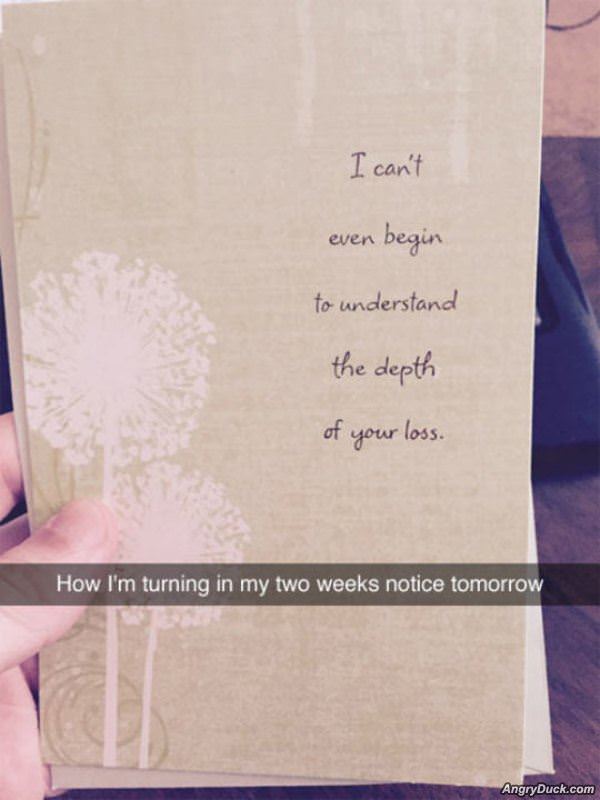 I can't
even begin
to understand
the depth
of your loss.
How I'm turning in my two weeks notice tomorrow
AngryDuck.com